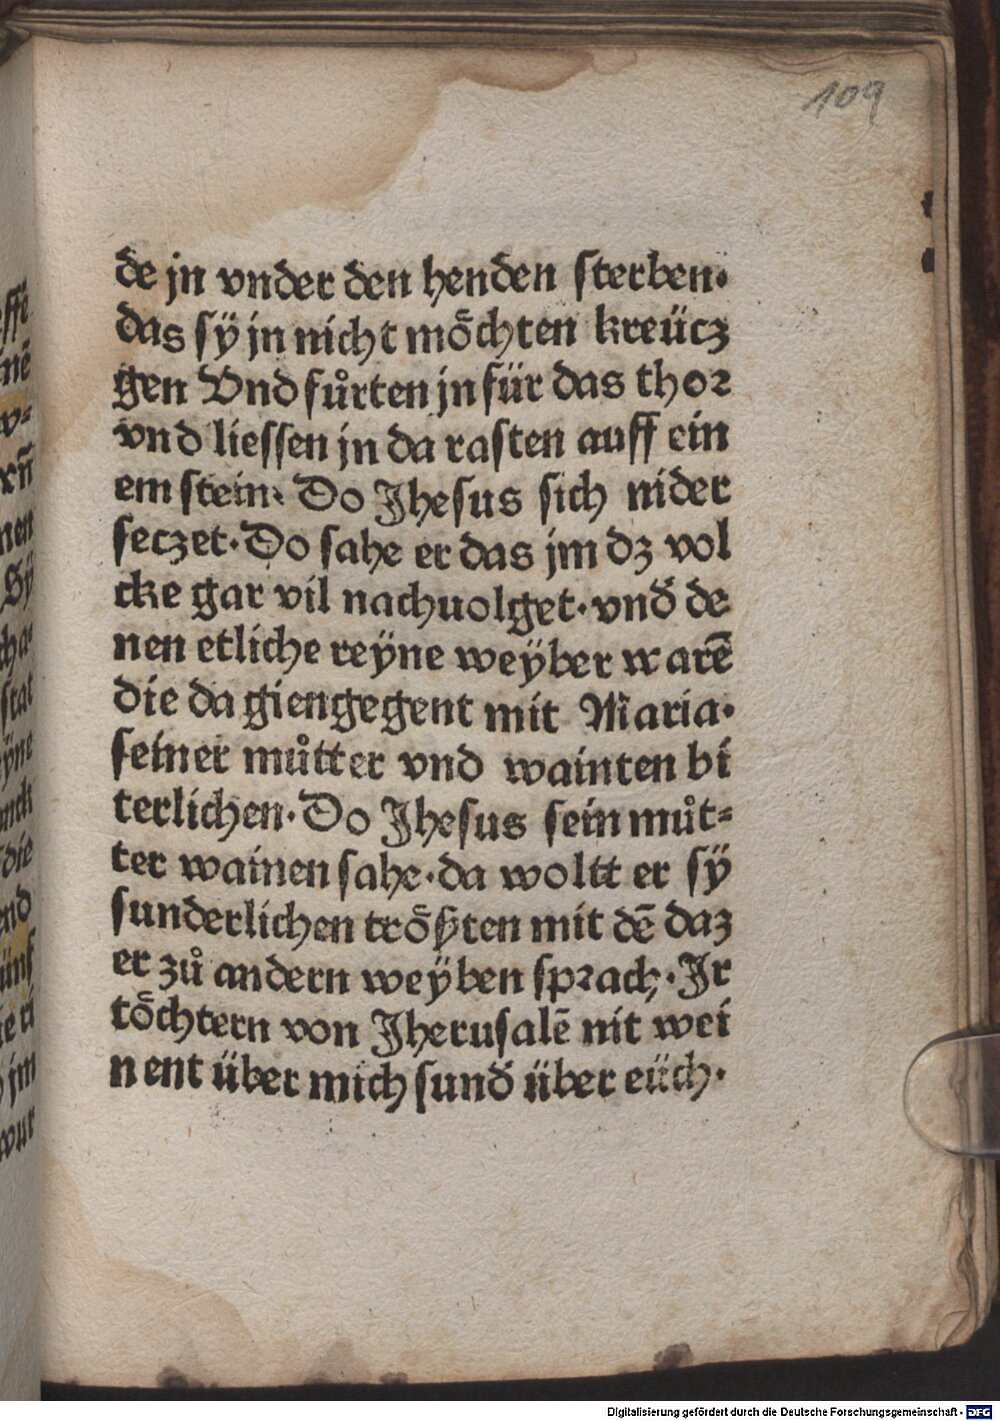 109
de jn vnder den henden sterben·
das sÿ jn nicht möchten kreücz
gen Vnd fůrten jn für das thor
vnd liessen jn da rasten auff ein
em stein· Do Jhesus sich nider
seczet·Do sahe er das jm dz vol
cke gar vil nachuolget·vnd de
nen etliche reÿne weÿber warē
die da giengegent mit Maria·
seiner můtter vnd wainten bi
terlichen·Do Jhesus sein můt=
ter wainen sahe·da woltt er sÿ
sunderlichen trößten mit dē daz
er zů andern weÿben sprach·Jr
töchtern von Jherusalē nit wei
nent über mich sund über eüch·
Digitalisierung gefördert durch die Deutsche Forschungsgemeinschaft - DFG